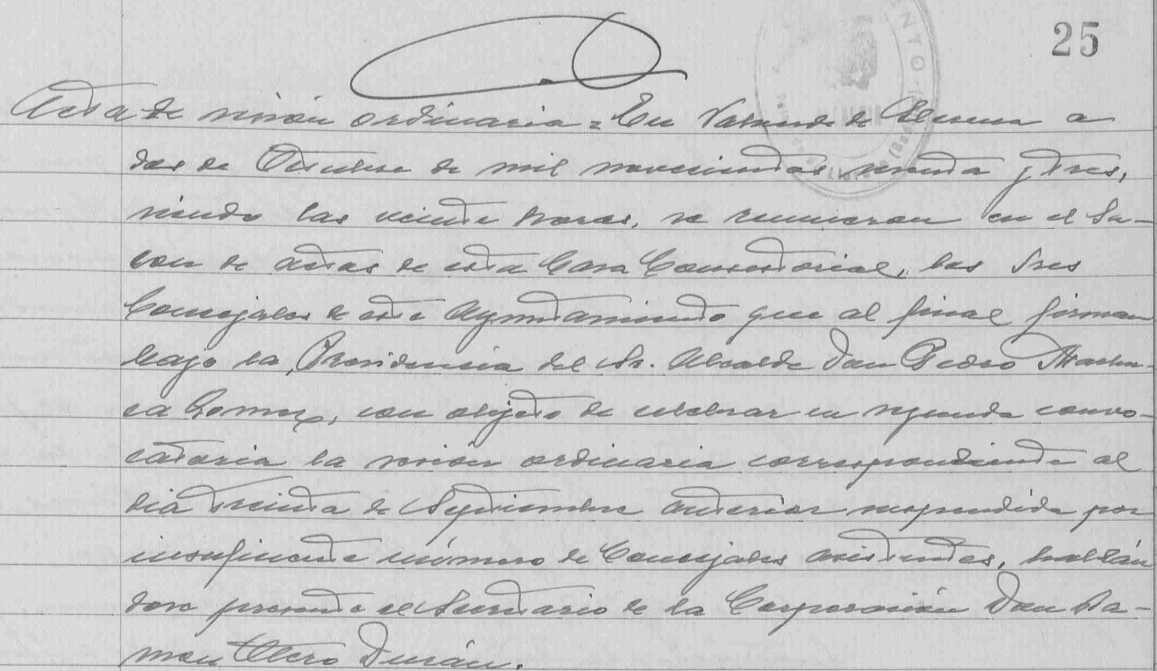 25
Acta de sesión ordinaria = En Valverde de a
dos de Octubre de mil novecientos treinta y tres,
siendo las veinte horas, se reunieron en el Sa-
lon de actas de esta Casa Consistorial, los Sres
Concejales de este Ayuntamiento que al final firman
bajo la Presidencia del Sr. Alcalde Don Pedro
Gomez, con objeto de celebrar en segunda convo-
catoria la sesión ordinaria correspondiente al
dia treinta de Septiembre anterior suspendida por
insuficiente número de Concejales asistentes, hallán
dose presente el Secretario de la Corporación Don Ra-
mon Otero Durán.